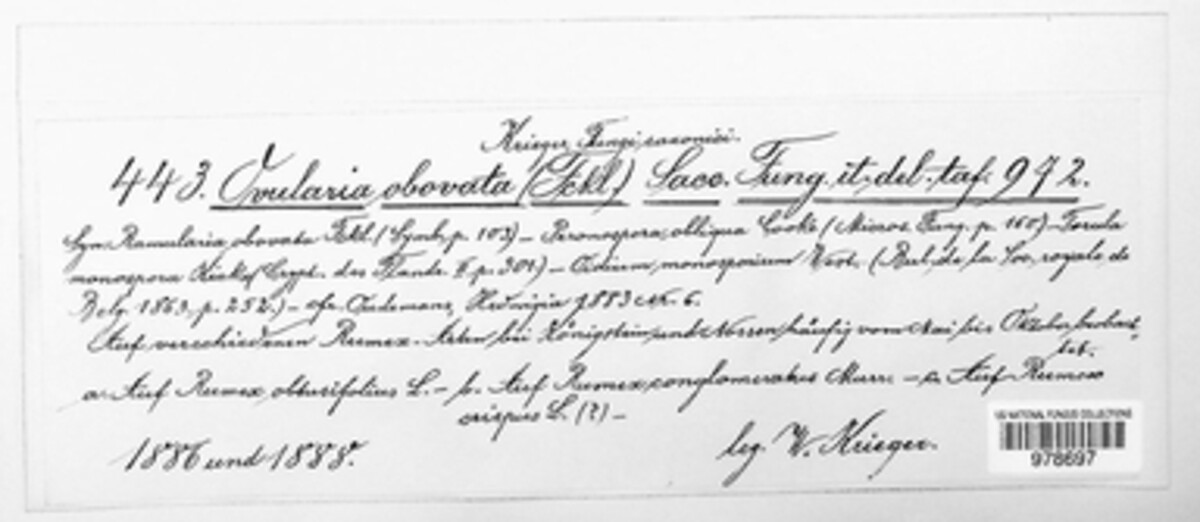 Krieger, Fungi saxonici.
443. Ovularia obovata (Fckl.) Sacc. Fung. it. del. taf. 972.
Syn. Ramularia obovata Fckl. (Symb. p. 103) – Peronospora obliqua Cooke (Micros. Fung. p. 160) – Torula
monospora Kickx Crypt. des Fland. II p. 301) – Oidium monosporium West. (Bul. de la Soc. royale de
Belg. 1863, p. 252.) – cfr. Oudemans, Hedwigia 1883 Nr. 6.
Auf verschiedenen Rumex-Arten bei Königstein und Nossen, häufig vom Mai bis Oktober beobach-
tet.
a. Auf Rumex obtusifolius L. – b. Auf Rumex conglomeratus Murr. – c. Auf Rumex
crispus L. (?) –
1886 und 1888.
leg. W. Krieger.
US NATIONAL FUNGUS COLLECTIONS
978697